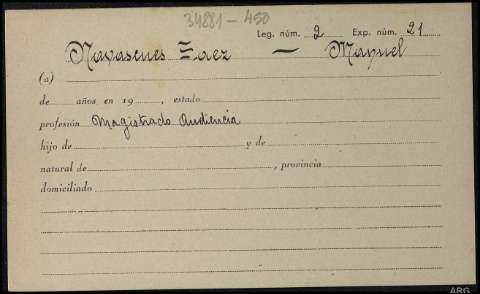 34881-450
Leg. núm. 2 Exp. núm. 21
Navascues Saez — Manuel
(a)
de años en 19 , estado
profesión Magistrado Audiencia
hijo de y de
natural de , provincia
domiciliado
ARG